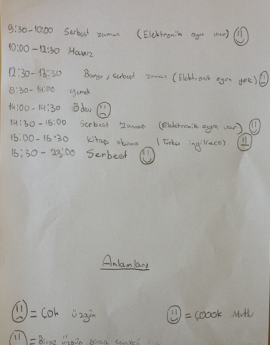 9:30-10:00 Serbest zaman (Elektronik oyun var)
10:00-12:30 Havuz
12:30-13:30 Banyo, serbest zaman (Elektronik oyun yok)
13:30-14:00 yemek
14:00-14:30 Ödev
14:30-15:00 Serbest Zaman (Elektronik oyun var)
15:00-15:30 kitap okuma (Türkçe ingilizce)
15:30-23:00 Serbest
Anlamları
= Çok üzgün = Çoook Mutlu
= Biraz üzgün biraz